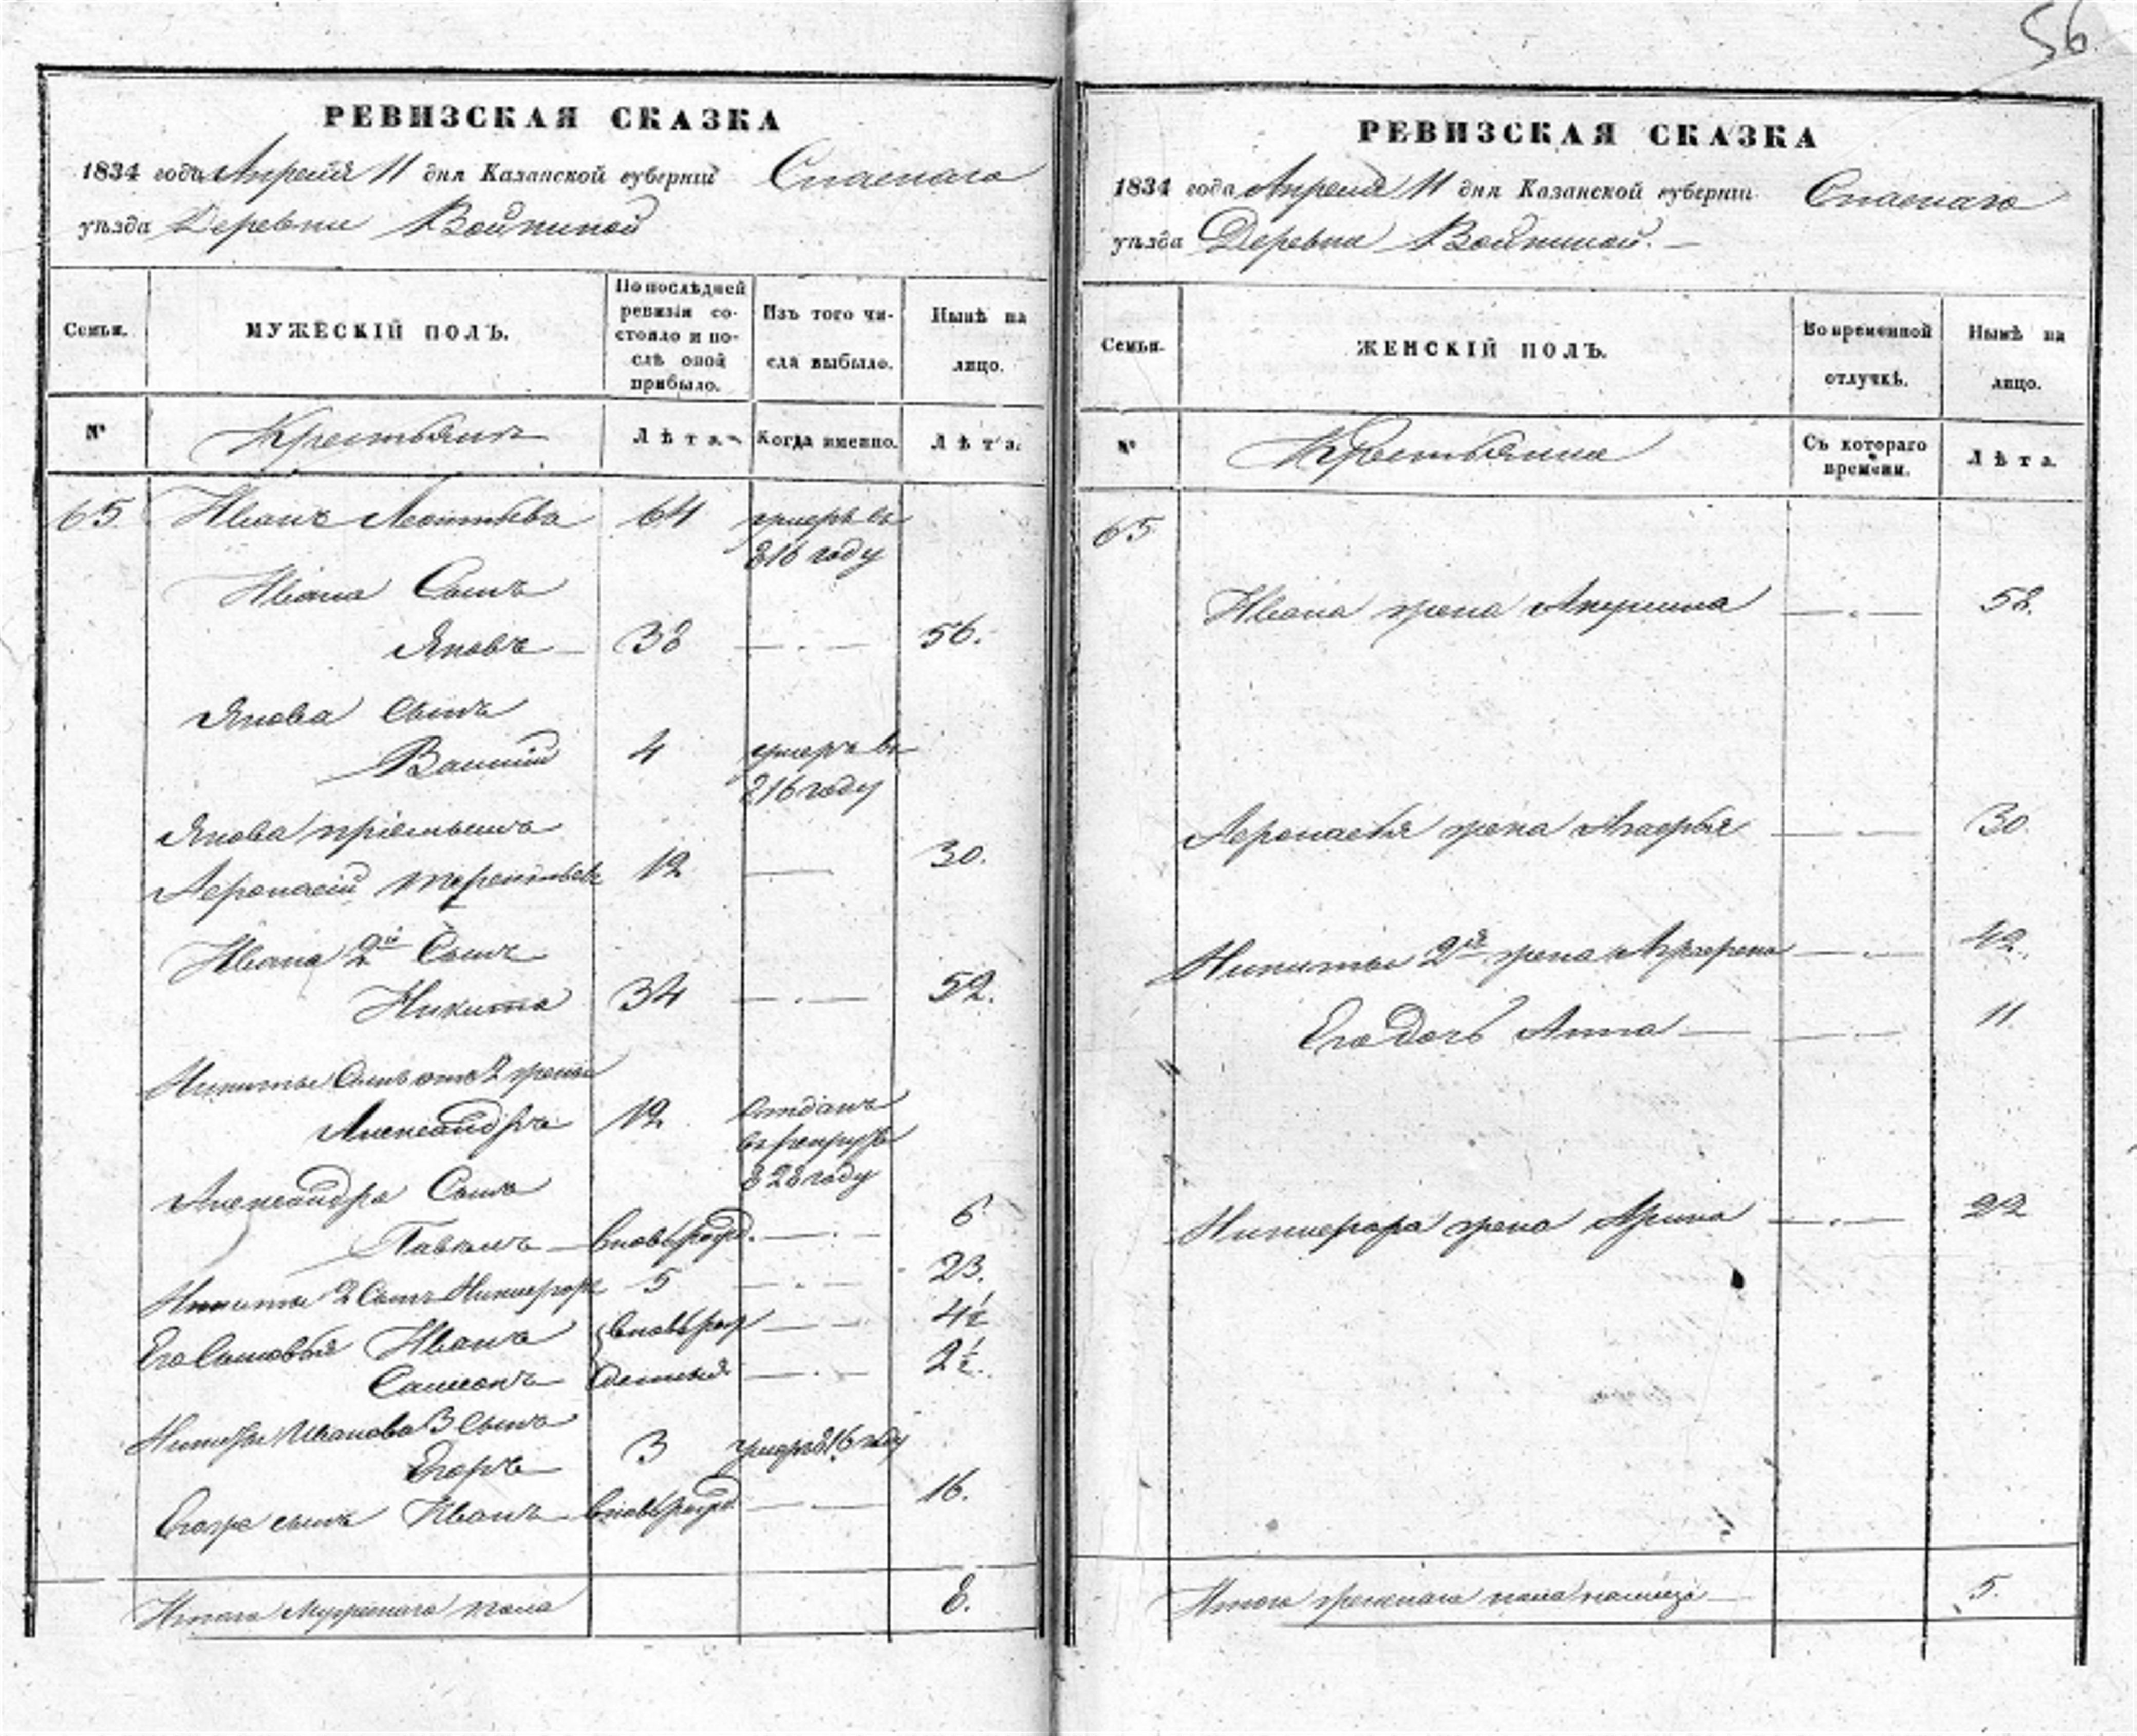 56.
РЕВИЗСКАЯ СКАЗКА
1834 года Апреля 11 дня Казанской губернiи Спаскаго
уѣзда Деревни Войкиной
Семьи.
МУЖЕСКІЙ ПОЛЪ.
По послѣдней
ревизіи со-
стояло и по-
слѣ оной
прибыло.
Изъ того чи-
сла выбыло.
Нынѣ на
лицо.
№
Крестьянъ
Лѣта.
Когда именно.
Лѣта.
65 Иванъ Леонтьевъ 64 умеръ въ
816 году
Ивана Сынъ
Яковъ 38 56.
Якова сынъ
Василий 4 умеръ въ
816 году
Якова пріемышъ
Афонасій Терентьевъ 12 30.
Ивана 2й Сынъ
Никита 34 52.
Никиты Сынъ отъ 2 жены
Александръ 12 отданъ
въ рекруты
828 году
Александра Сынъ
Павелъ вновьрожд. 6
Никиты 2 Сынъ Никифоръ 5 23.
Его Сыновья Иванъ вновьрож 4½
Самсонъ 2½.
Никиты Иванова 3 сынъ
Егоръ 3 умеръ 816 году
Егора сынъ Иванъ вновьрожд. 16.
Итого Мужескаго пола 8.
РЕВИЗСКАЯ СКАЗКА
1834 года Апреля 11 дня Казанской губерніи Спаскаго
уѣзда Деревни Войкиной.
Семьи.
ЖЕНСКІЙ ПОЛЪ.
Во временной
отлучкѣ.
Нынѣ на
лицо.
№
Крестьянка
Съ котораго
времени.
Лѣта.
65
Якова жена Акулина 52.
Афонасья жена 30.
Никиты 2я жена Аграфена 42.
Его Дочь Анна 11.
Никифора жена Арина 22
Итого женскаго пола налицо 5.